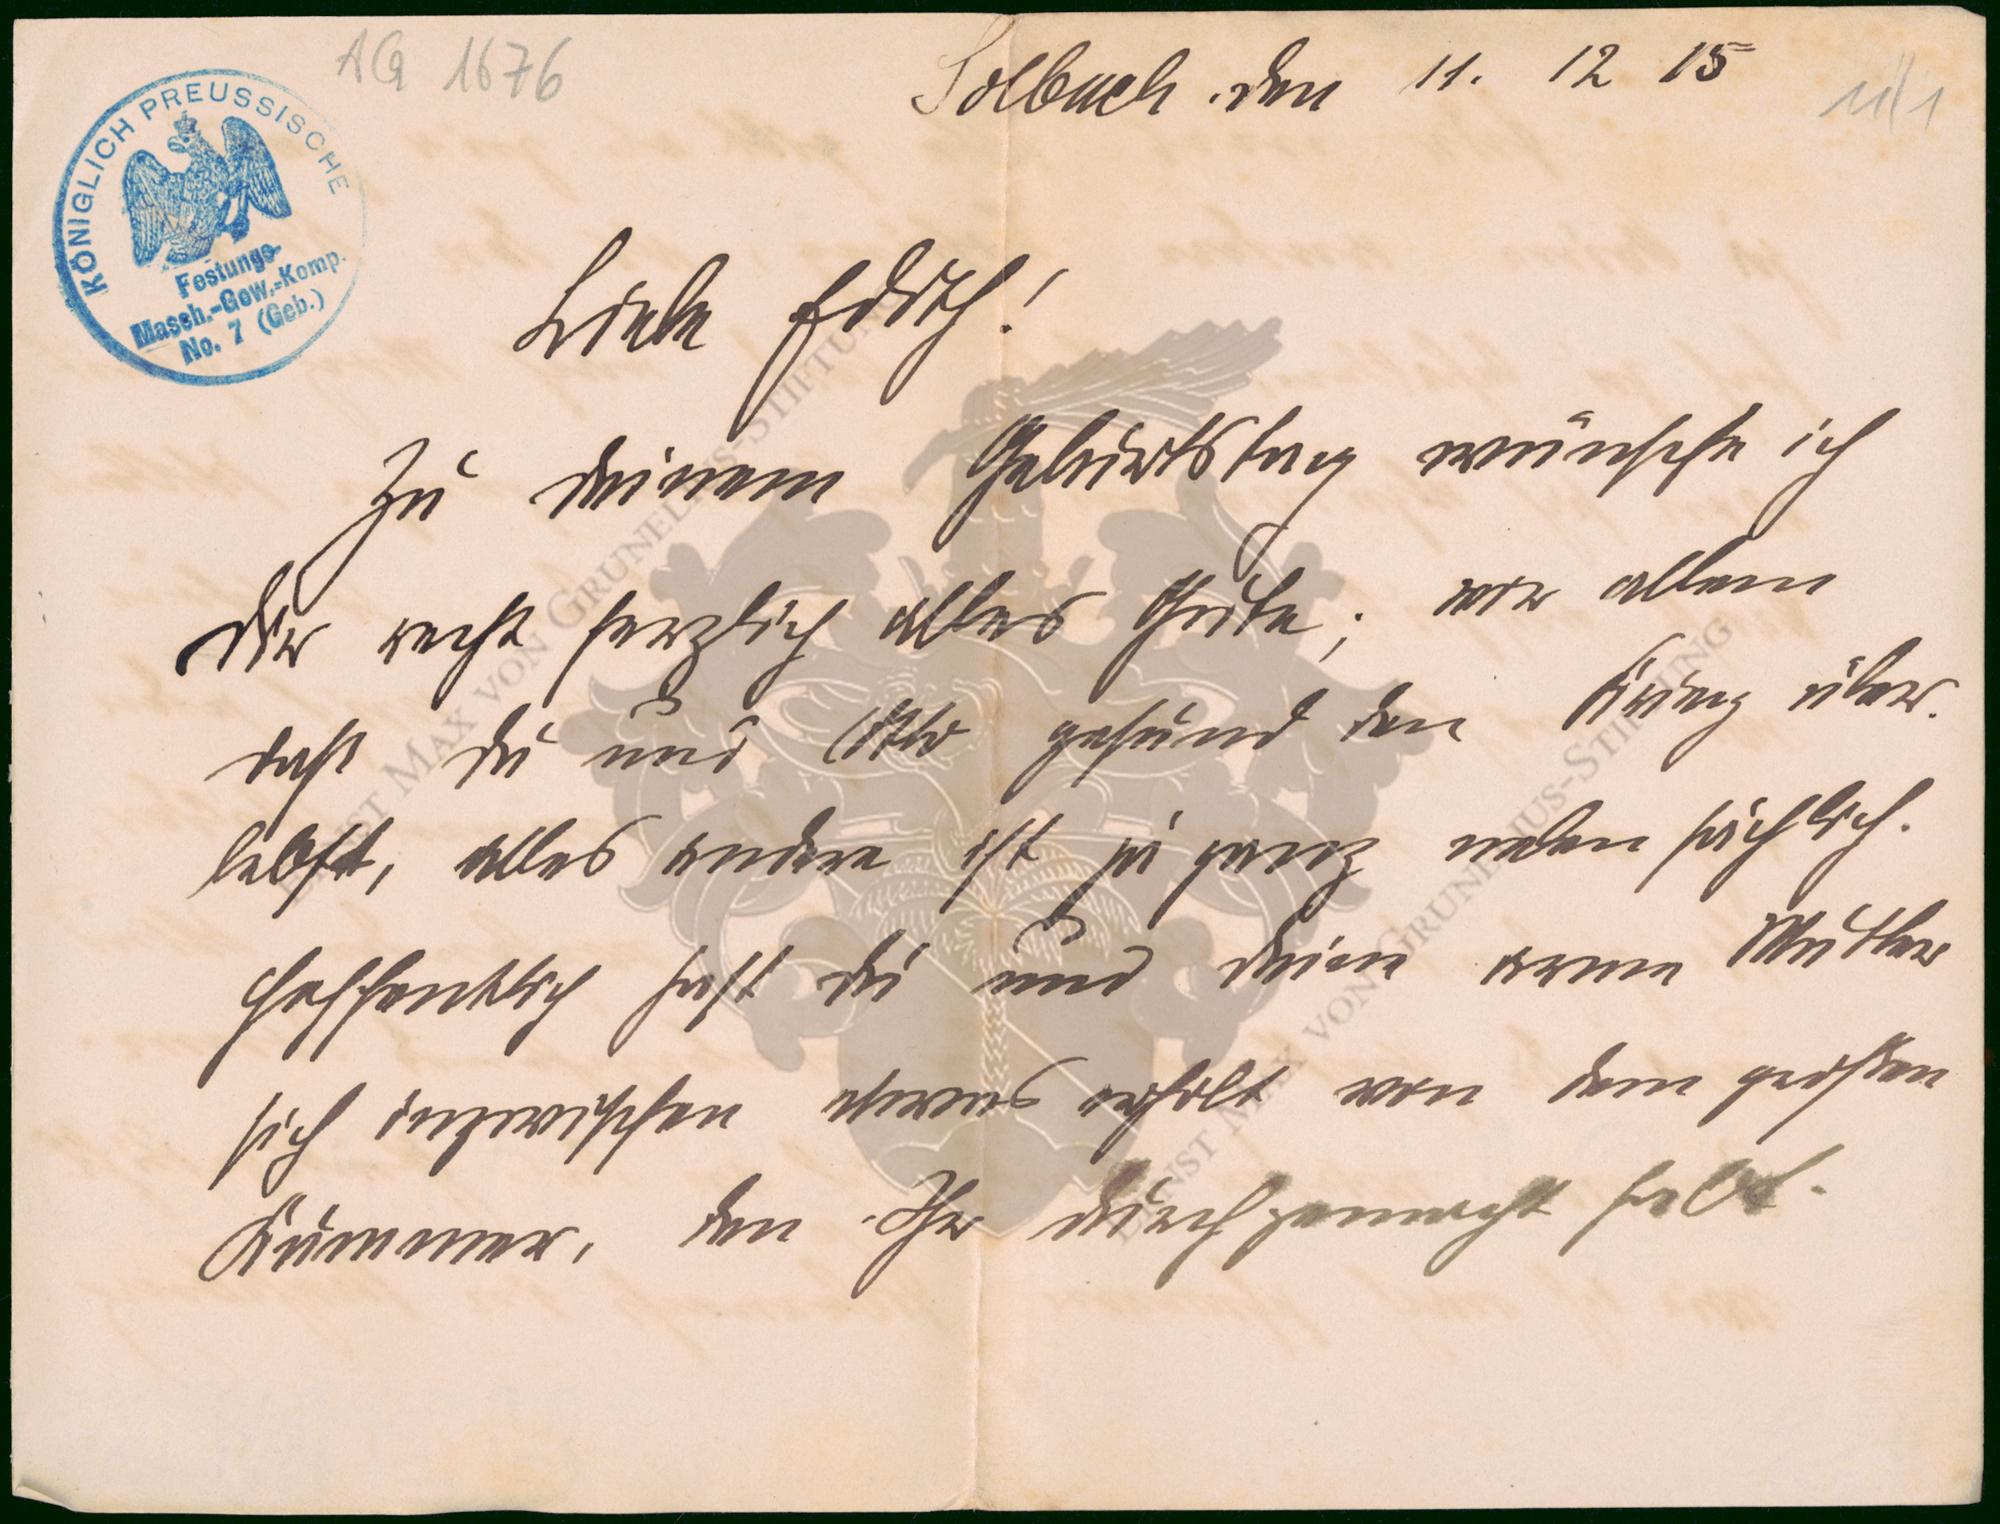 AG 1676
Solbach den 11. 12 15
11/1
KÖNIGLICH PREUSSISCHE
Festungs-
Masch.-Gew.-Komp.
No. 7 (Geb.)
Liebe Edith!
Zu deinem Geburtstag wünsche ich
Dir recht herzlich alles Gute; vor allem
daß Du und Otto gesund den Krieg über-
lebst, alles andere ist ja ganz neben sächlich.
Hoffentlich hast Du und deine arme Mutter
sich inzwischen etwas erholt von dem großen
Kummer, den Ihr durchgemacht habt.
ERNST MAX VON GRUNELIUS-STIFTUNG
ERNST MAX VON GRUNELIUS-STIFTUNG